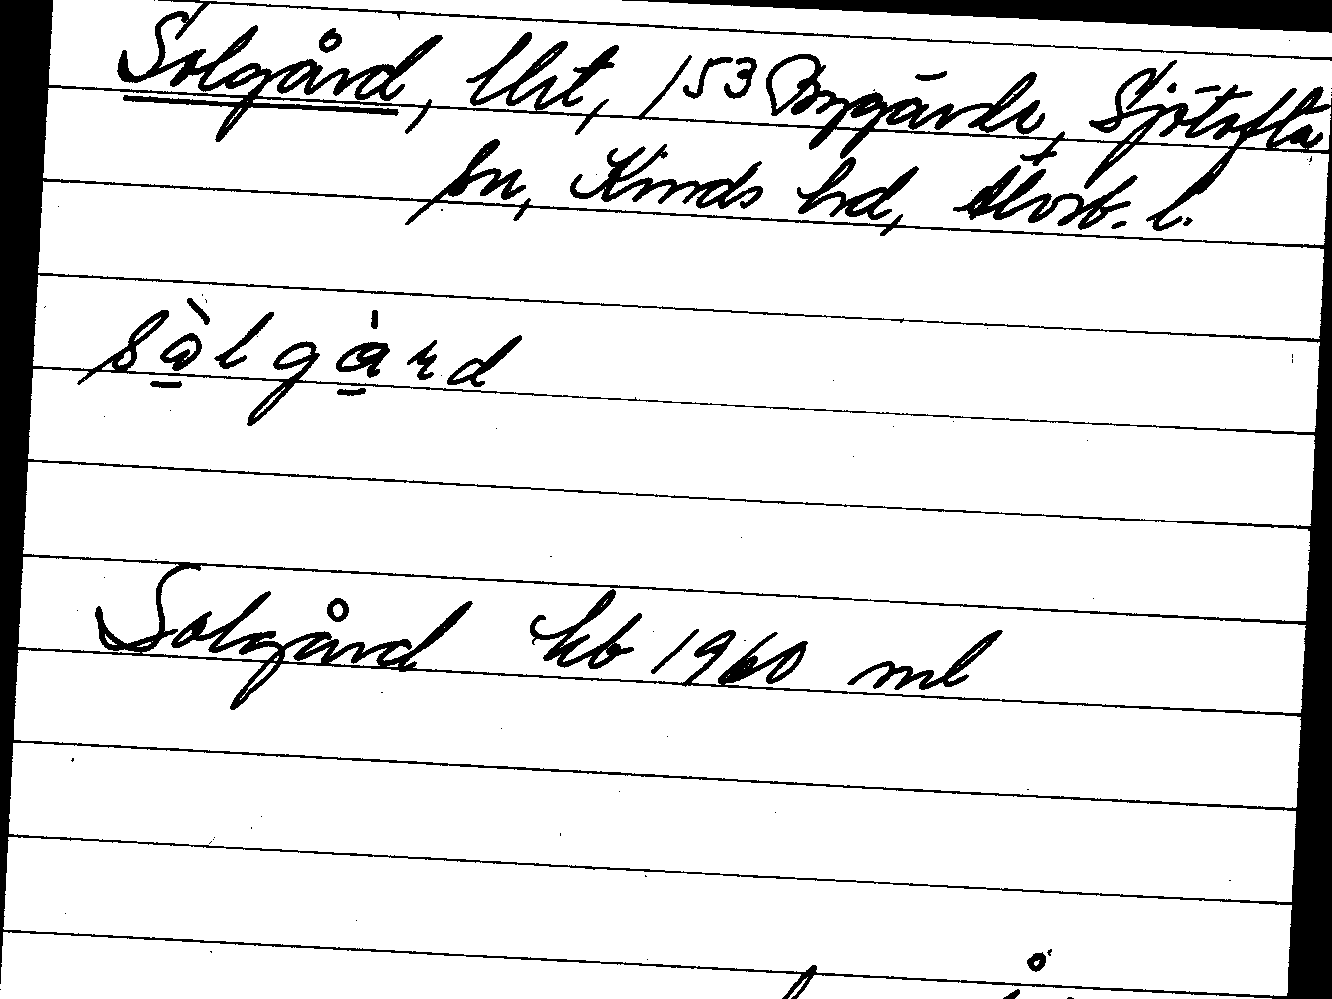 Solgård, lht, 153 Bygärde, Sjötofta
sn, Kinds hd, Älvsb. l.
sòlgàrd
Solgård kb 1960 ml